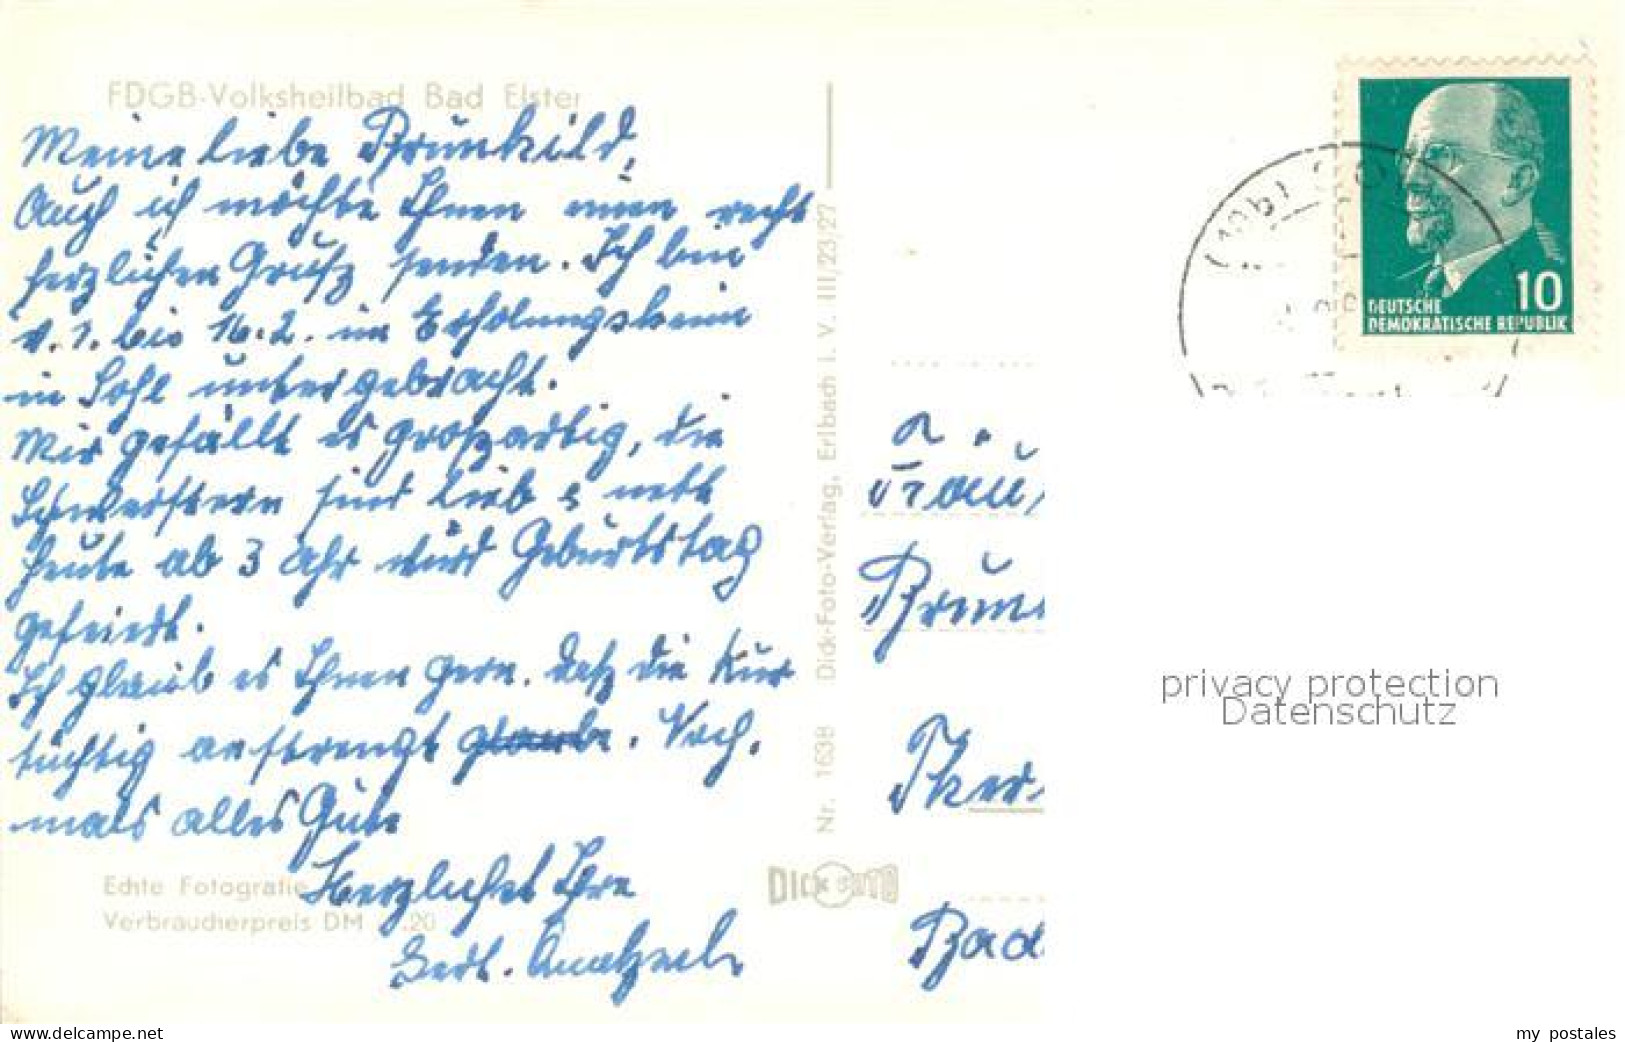 FDGB-Volksheilbad Bad Elster
Meine liebe Brünhild,
Auch ich möchte Ihnen einen recht
herzlichen Gruß senden. Ich bin
v. 1. bis 16.2. im Erholungsheim
in Sohl untergebracht.
Mir gefällt es großartig, die
Schwestern sind lieb & nett
heute ab 3 Uhr wird Geburtstag
gefeiert.
Ich glaub es Ihnen gern, daß die Kur
tüchtig anstrengt. Noch-
mals alles Gute
Herzlichst Ihre
Echte Fotografie
Verbraucherpreis DM .20
Nr. 1638 Dick-Foto-Verlag, Erlbach i. V. III/23/27
DICK FOTO
10
DEUTSCHE
DEMOKRATISCHE REPUBLIK
Frau
Brün
Bad
privacy protection
Datenschutz
www.delcampe.net
my_postales